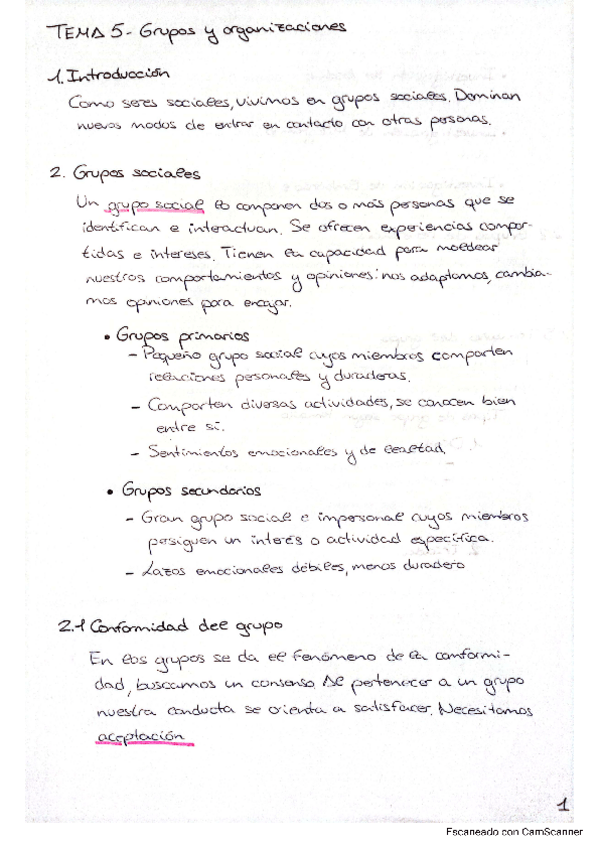 TEMA 5- Grupos y organizaciones
1. Introducción
Como seres sociales, vivimos en grupos sociales. Dominan
nuevos modos de entrar en contacto con otras personas.
2. Grupos sociales
Un grupo social lo componen dos o más personas que se
identifican e interactuan. Se ofrecen experiencias compar-
tidas e intereses. Tienen la capacidad para moldear
nuestros comportamientos y opiniones: nos adaptamos, cambia-
mos opiniones para encajar.
• Grupos primarios
- Pequeño grupo social cuyos miembros comparten
relaciones personales y duraderas.
- Comparten diversas actividades, se conocen bien
entre sí.
- Sentimientos emocionales y de lealtad.
• Grupos secundarios
- Gran grupo social e impersonal cuyos miembros
persiguen un interés o actividad específica.
- Lazos emocionales débiles, menos duradero
2.1 Conformidad del grupo
En los grupos se da el fenómeno de la conformi-
dad, buscamos un consenso. Al pertenecer a un grupo
nuestra conducta se orienta a satisfacer. Necesitamos
aceptación
1
Escaneado con CamScanner